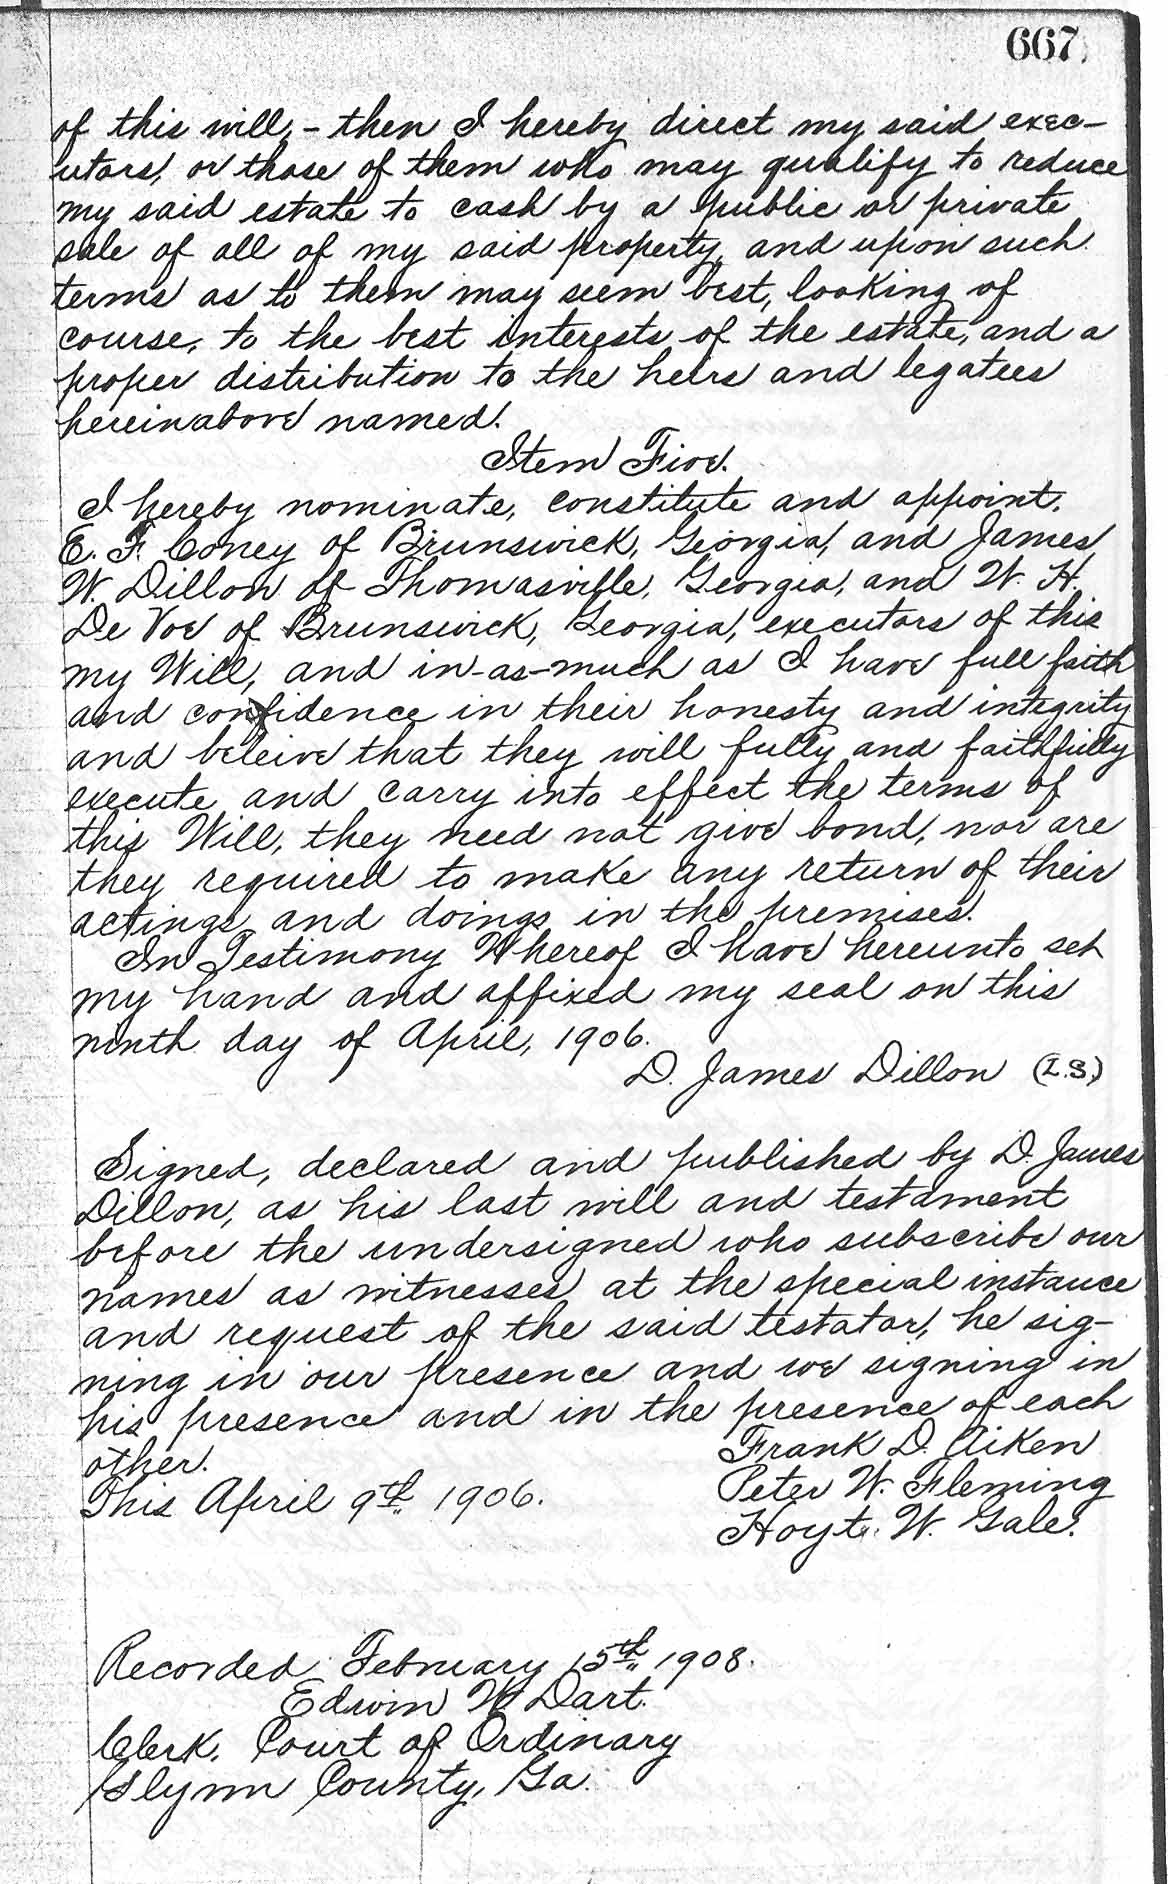 667
of this will, - then I hereby direct my said exec-
utors, or those of them who may qualify to reduce
my said estate to cash by a public or private
sale of all of my said property, and upon such
terms as to them may seem best, looking of
course, to the best interests of the estate, and a
proper distribution to the heirs and legatees
hereinabove named.
Item Five.
I hereby nominate, constitute and appoint,
E. F. Coney of Brunswick, Georgia, and James
W. Dillon of Thomasville, Georgia, and W. H.
De Voe of Brunswick, Georgia, executors of this
my Will, and in-as-much as I have full faith
and confidence in their honesty and integrity
and beleive that they will fully and faithfully
execute and carry into effect the terms of
this Will, they need not give bond, nor are
they required to make any return of their
actings and doings in the premises.
In Testimony Whereof I have hereunto set
my hand and affixed my seal on this
ninth day of April, 1906.
D. James Dillon (L.S.)
Signed, declared and published by D. James
Dillon, as his last will and testament
before the undersigned who subscribe our
names as witnesses at the special instance
and request of the said testator, he sig-
ning in our presence and we signing in
his presence and in the presence of each
other.
Frank D. Aiken
This April 9th 1906.
Peter W. Fleming
Hoyt W. Gale.
Recorded February 15th 1908.
Edwin W Dart.
Clerk, Court of Ordinary
Glynn County, Ga.